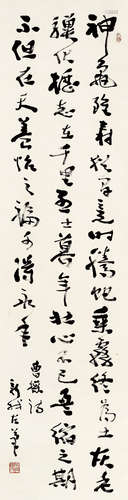 神龜雖壽猶有竟時騰蛇乘霧終為土灰老
驥伏櫪志在千里烈士暮年壯心不已盈縮之期
不但在天養怡之福可得永年
曹操詩
新我左筆